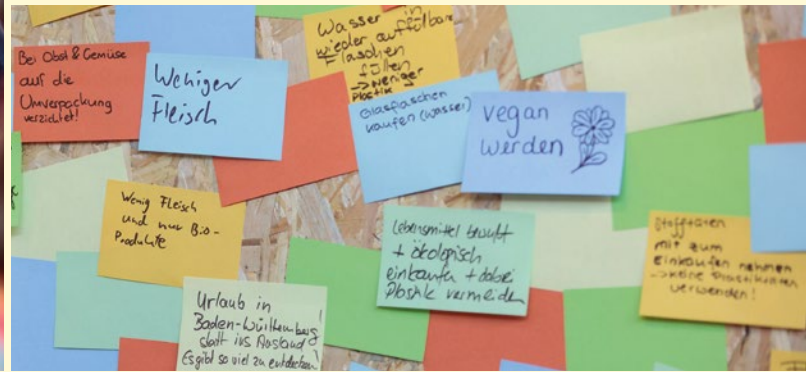 Bei Obst & Gemüse
auf die
Umverpackung
verzichtet!
Weniger
Fleisch
Wasser in
wieder auffülbare
Flaschen
füllen
→ weniger
Plastik
Glasflaschen
kaufen (wasser)
vegan
werden
Wenig Fleisch
und nur Bio-
Produkte
Lebensmittel bewußt
+ ökologisch
einkaufen + dabei
Plastik vermeiden
Stofftüten
mit zum
einkaufen nehmen
→ keine Plastiktüten
verwenden!
Urlaub in
Baden-Württemberg
statt ins Ausland
Es gibt so viel zu entdecken